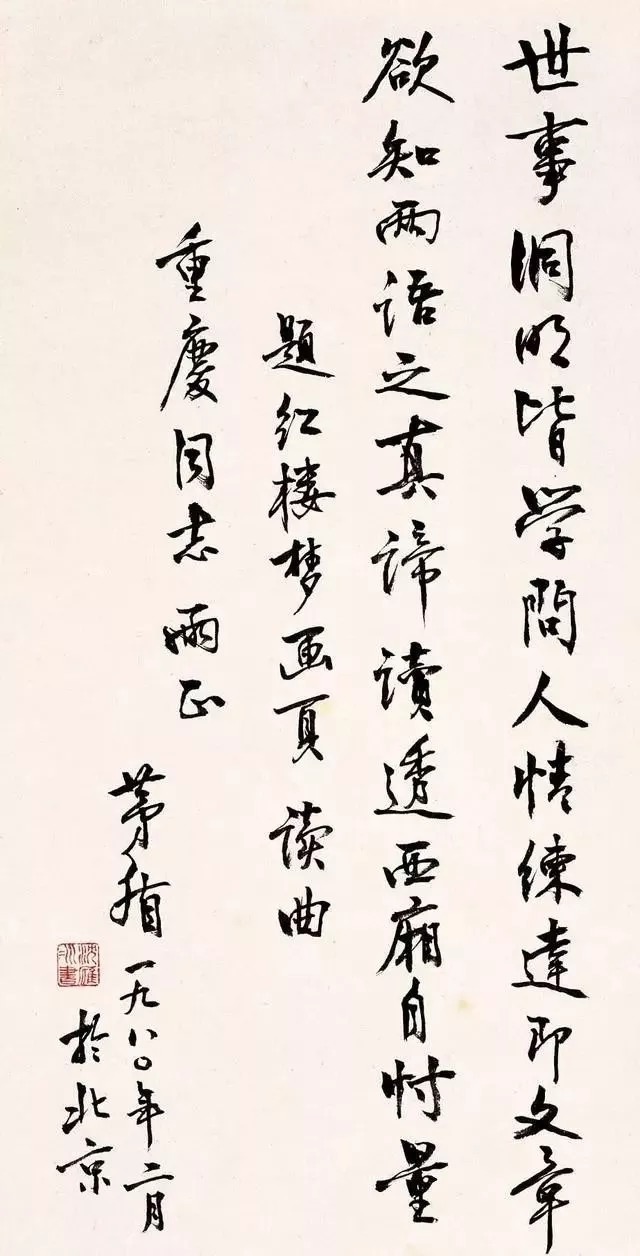 世事洞明皆学問人情练達即文章
欲知两语之真谛读透西厢自忖量
题红楼梦画頁 读曲
重慶同志两正
茅盾 一九八〇年二月
於北京